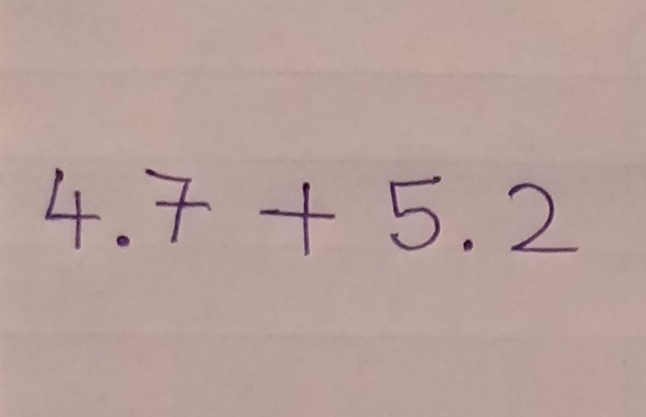 4.7 + 5.2